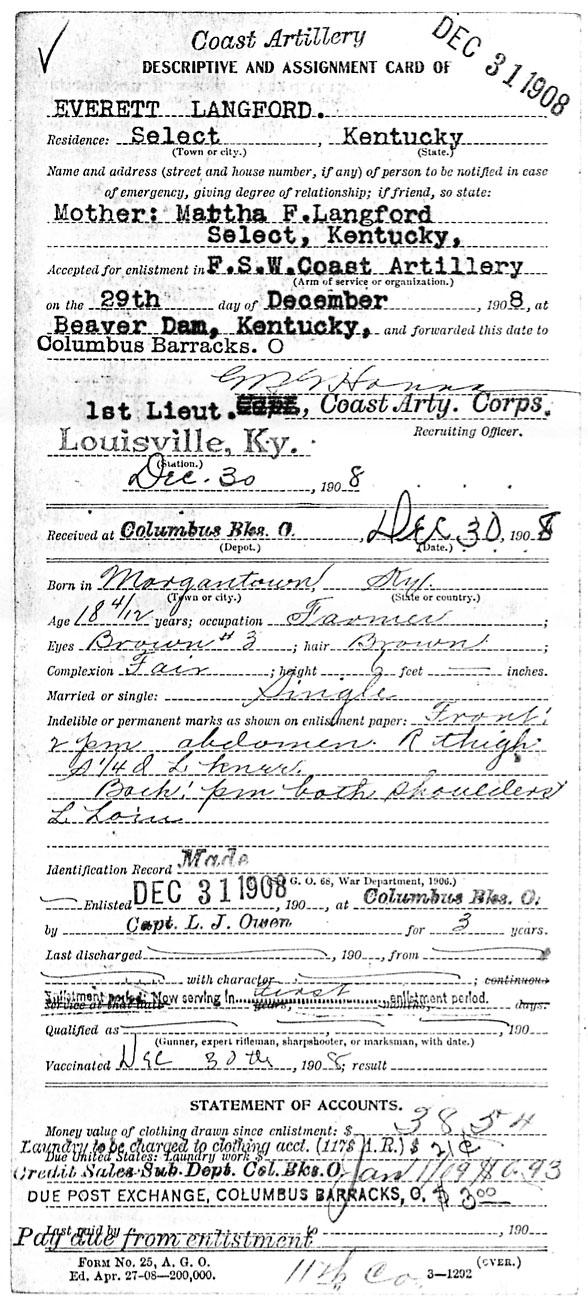 Coast Artillery
DEC 31 1908
DESCRIPTIVE AND ASSIGNMENT CARD OF
EVERETT LANGFORD.
Residence: Select, Kentucky
(Town or city.) (State.)
Name and address (street and house number, if any) of person to be notified in case
of emergency, giving degree of relationship; if friend, so state:
Mother: Martha F.Langford
Select, Kentucky,
Accepted for enlistment in F.S.W.Coast Artillery
(Arm of service or organization.)
on the 29th day of December, 1908, at
Beaver Dam, Kentucky, and forwarded this date to
Columbus Barracks. O
1st Lieut. Capt., Coast Arty. Corps.
Louisville, Ky. Recruiting Officer.
(Station.)
Dec. 30, 1908
Received at Columbus Bks. O., Dec 30, 1908
(Depot.) (Date.)
Born in Morgantown, Ky.
(Town or city.) (State or country.)
Age 18 4/12 years; occupation Farmer;
Eyes Brown #3; hair Brown;
Complexion Fair; height feet — inches.
Married or single: Single
Indelible or permanent marks as shown on enlistment paper: Front:
2 pm abdomen. R thigh
S 1/4 d L knee.
Back: pm both shoulders
L Loin
Identification Record Made
G. O. 68, War Department, 1906.)
Enlisted DEC 31 1908, 190, at Columbus Bks. O.
by Capt. L. J. Owen for 3 years.
Last discharged, 190, from
with character; continuous
Enlistment period: Now serving in first enlistment period.
service at that date years, months, days.
Qualified as, 190
(Gunner, expert rifleman, sharpshooter, or marksman, with date.)
Vaccinated Dec 30th, 1908; result
STATEMENT OF ACCOUNTS.
Money value of clothing drawn since enlistment: $ 38.54
Laundry to be charged to clothing acct. (1178 A.R.) $ 21¢
Due United States: Laundry work
Credit Sales Sub. Dept. Col. Bks. O. Jan 1/09 $ 6.93
DUE POST EXCHANGE, COLUMBUS BARRACKS, O. $ 3.00
Last paid by to, 190
Pay due from enlistment
FORM No. 25, A. G. O. (OVER.)
Ed. Apr. 27-08—200,000. 11th Co. 3—1292